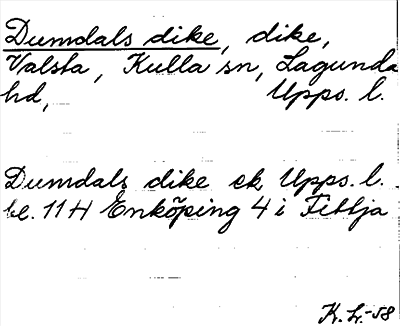 Dumdals dike, dike,
Valsta, Kulla sn, Lagunda
hd, Upps. l.
Dumdals dike ek Upps. l.
bl. 11 H Enköping 4 i Fittja
K. L. -58